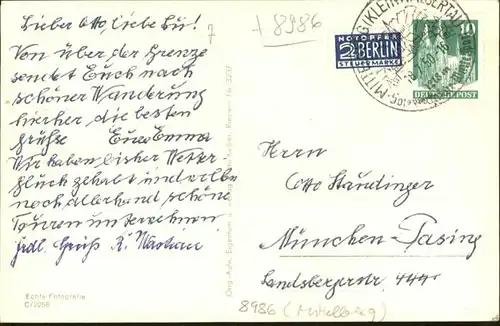 Lieber Otto, liebe Lu!
Von über der Grenze
sendet Euch nach
schöner Wanderung
hierher die besten
Grüße Eure Emma
Wir haben bisher Wetter-
glück gehabt und wollen
noch allerhand schöne
Touren unternehmen
frdl. Gruß R.
Echte Fotografie
C/2056
7
+ 8986
NOTOPFER
2 BERLIN
STEUERMARKE
(KLEINWALSERTAL)
10
DEUTSCHE POST
Herrn
Otto Staudinger
München-Pasing
Landsbergerstr. 444
8986 (Mittelberg)